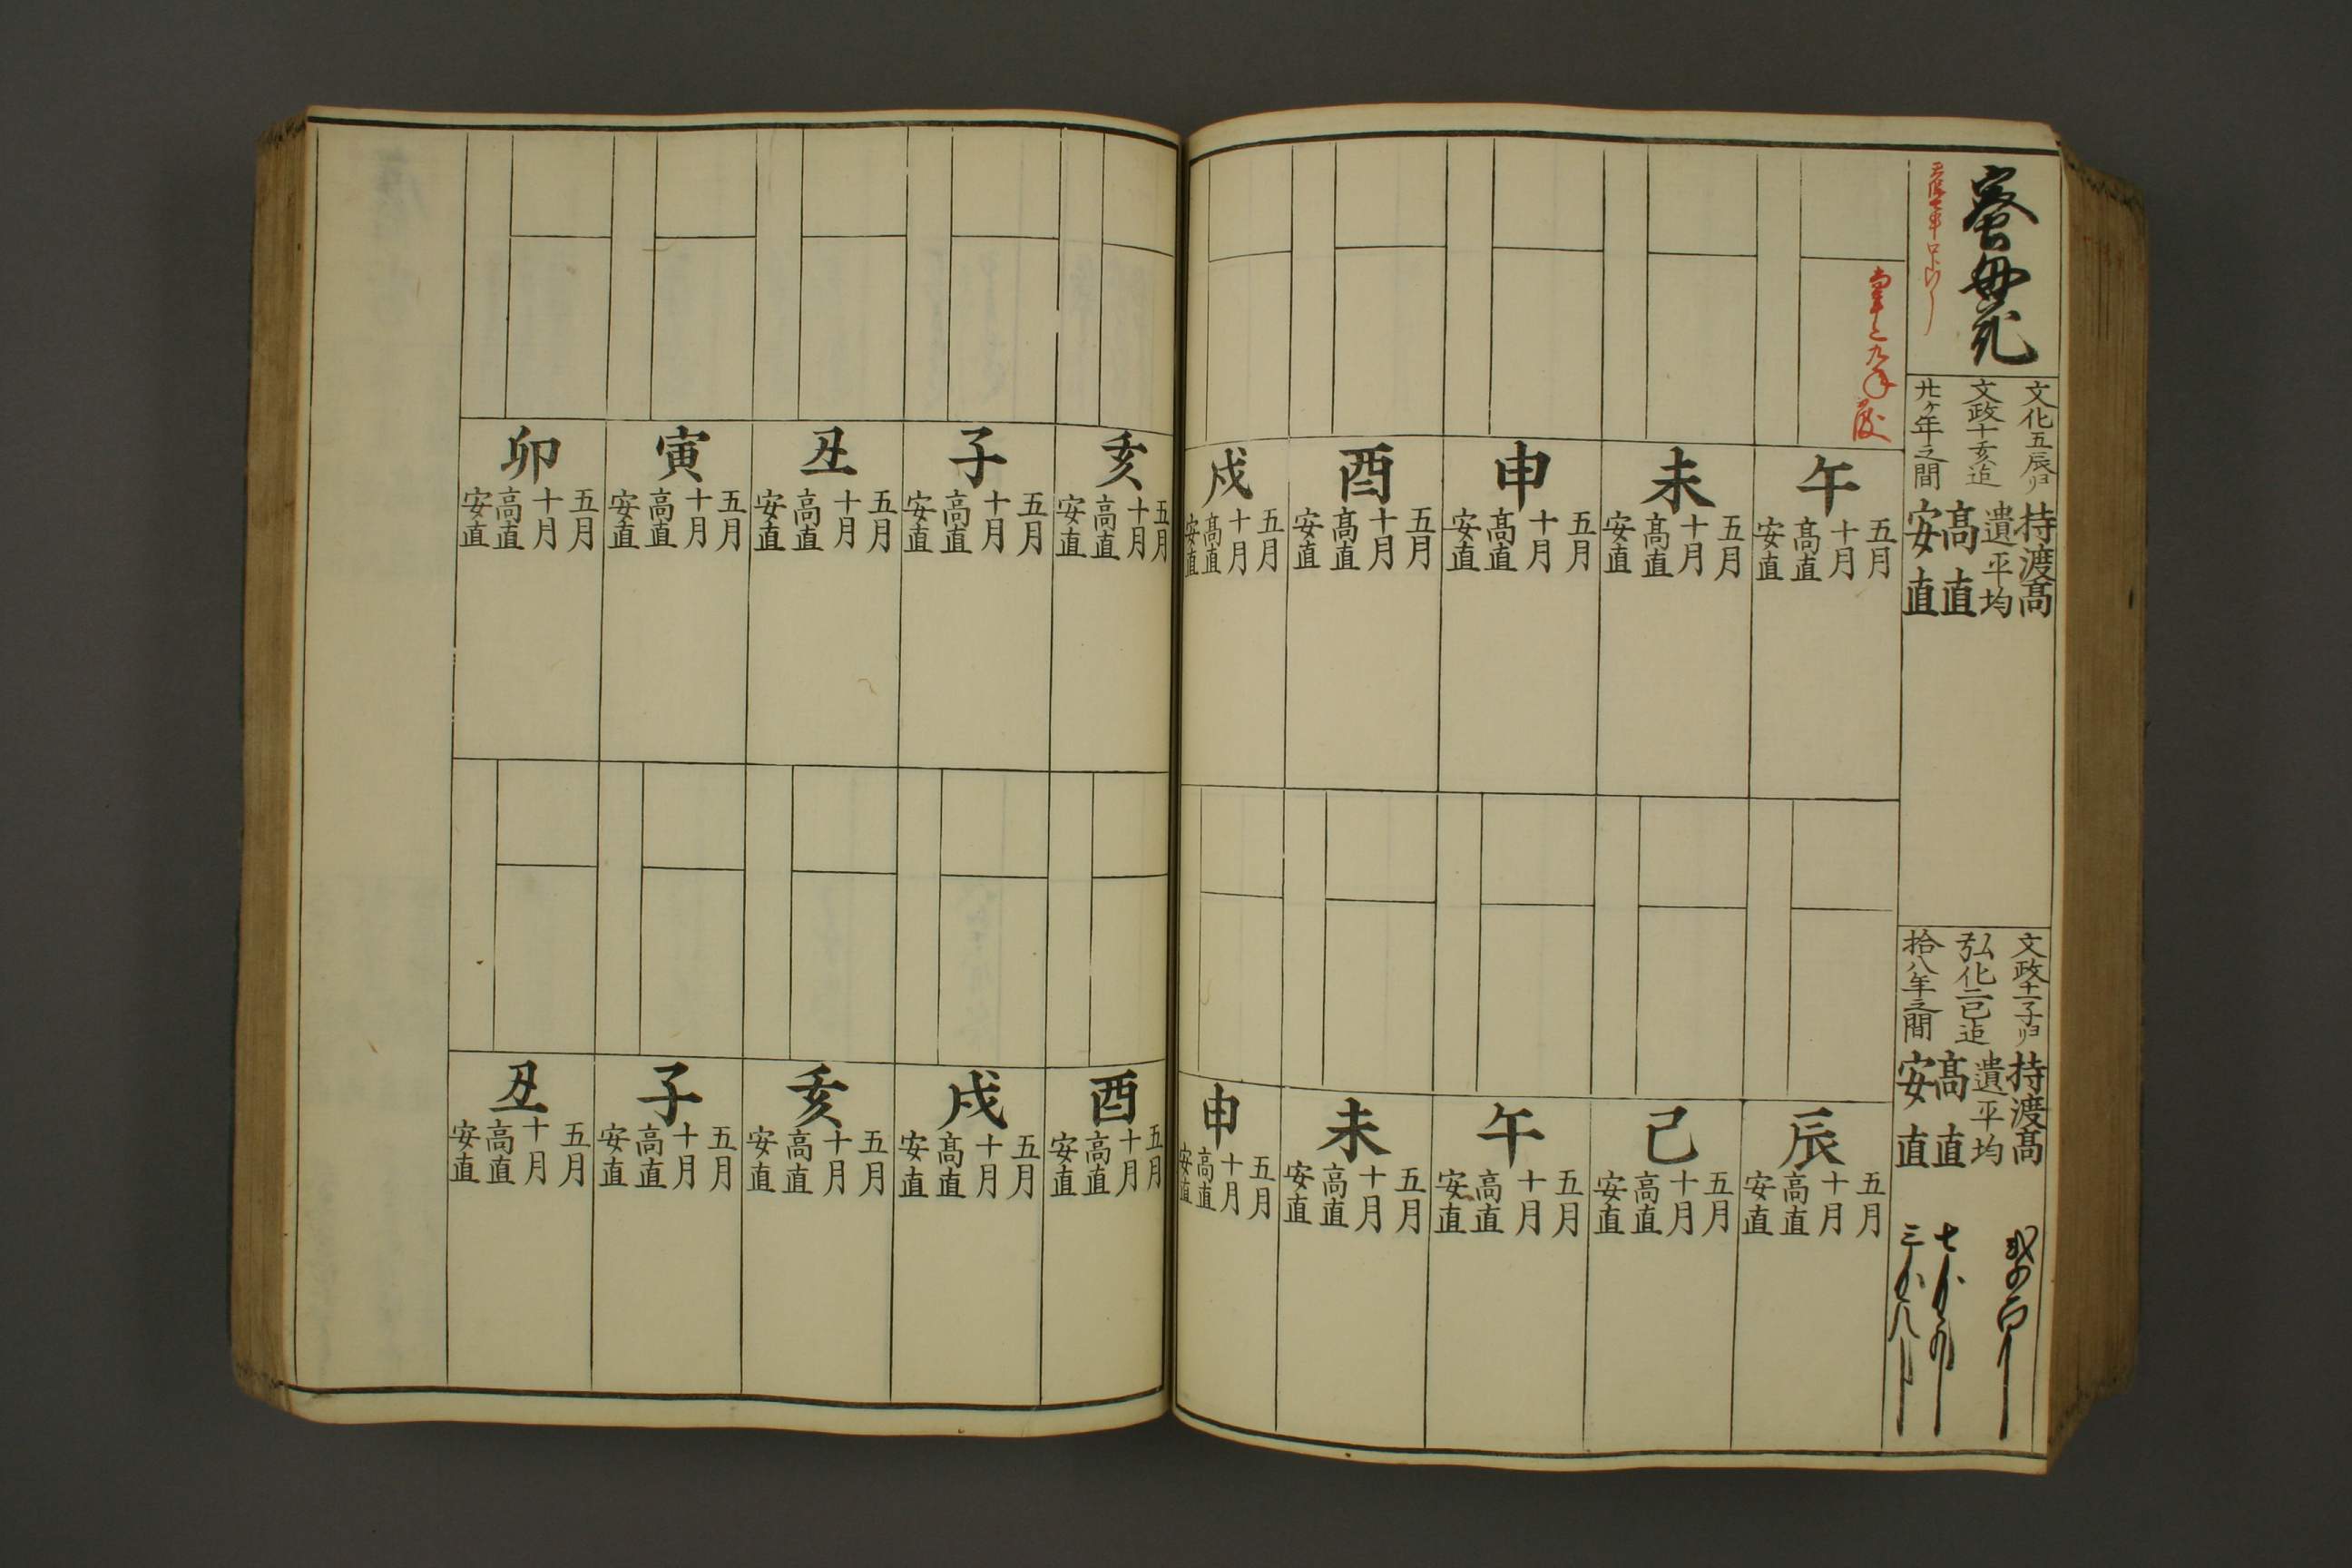 蜜母花
文化五辰ヨリ
文政十亥迄
廿ケ年之間
持渡高
遺平均
高直
安直
午
五月
十月
高直
安直
未
五月
十月
高直
安直
申
五月
十月
高直
安直
酉
五月
十月
高直
安直
戌
五月
十月
高直
安直
亥
五月
十月
高直
安直
子
五月
十月
高直
安直
丑
五月
十月
高直
安直
寅
五月
十月
高直
安直
卯
五月
十月
高直
安直
文政十一子ヨリ
弘化二巳迄
拾八年之間
持渡高
遺平均
高直
安直
辰
五月
十月
高直
安直
巳
五月
十月
高直
安直
午
五月
十月
高直
安直
未
五月
十月
高直
安直
申
五月
十月
高直
安直
酉
五月
十月
高直
安直
戌
五月
十月
高直
安直
亥
五月
十月
高直
安直
子
五月
十月
高直
安直
丑
五月
十月
高直
安直